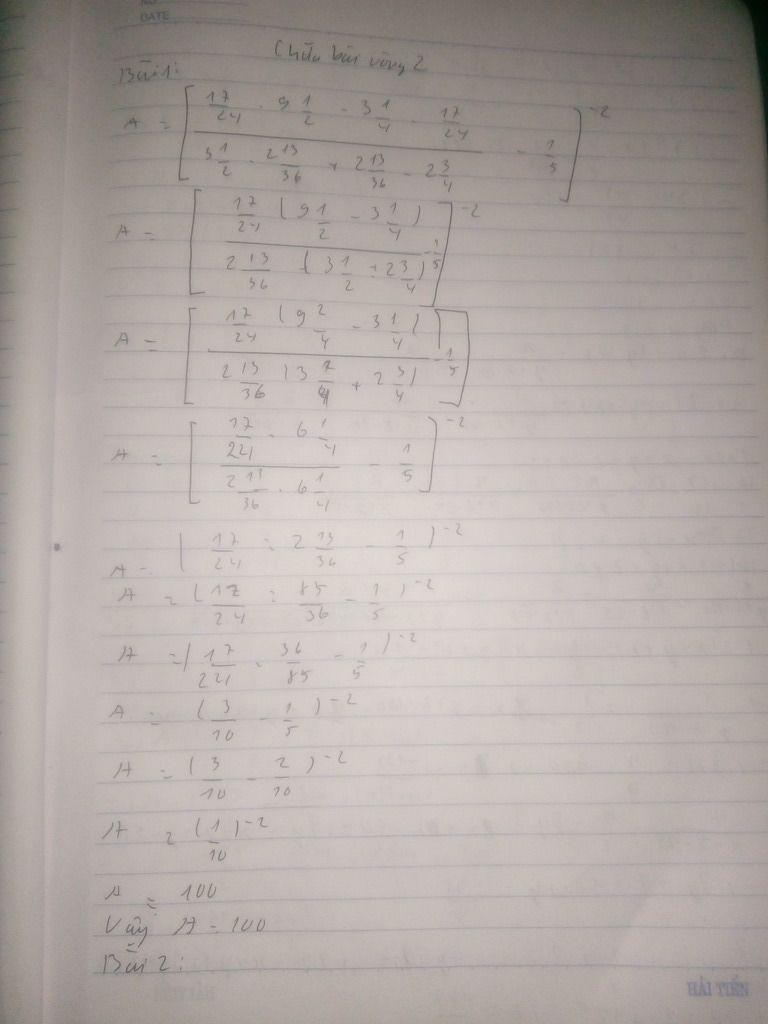 NO
DATE
Chữa bài vòng 2
Bài 1:
A = [ (17/24 . 9 1/2 - 3 1/4 . 17/24) / (3 1/2 . 2 13/36 + 2 13/36 . 2 3/4) - 1/5 ]^-2
A = [ 17/24 (9 1/2 - 3 1/4) / 2 13/36 (3 1/2 + 2 3/4) - 1/5 ]^-2
A = [ 17/24 (9 2/4 - 3 1/4) / 2 13/36 (3 2/4 + 2 3/4) - 1/5 ]
A = [ (17/24 . 6 1/4) / (2 13/36 . 6 1/4) - 1/5 ]^-2
A = ( 17/24 : 2 13/36 - 1/5 )^-2
A = ( 17/24 : 85/36 - 1/5 )^-2
A = ( 17/24 . 36/85 - 1/5 )^-2
A = ( 3/10 - 1/5 )^-2
A = ( 3/10 - 2/10 )^-2
A = ( 1/10 )^-2
A = 100
Vậy A = 100
Bài 2:
HẢI TIẾN